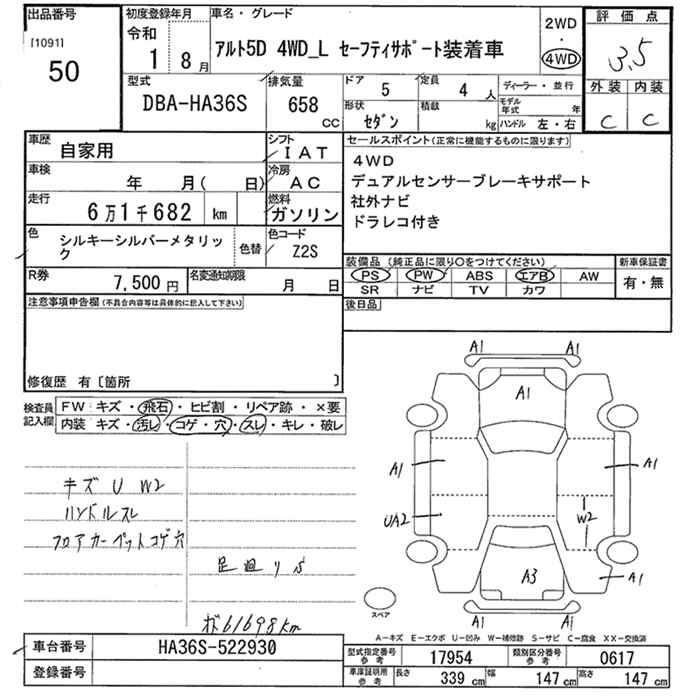 出品番号
[1091]
50
初度登録年月
令和
1 8月
車名・グレード
アルト5D 4WD_L セーフティサポート装着車
2WD
・
4WD
評価点
3.5
外装 内装
C C
型式
DBA-HA36S
排気量
658
CC
ドア
5
定員
4 人
形状
セダン
積載
kg
ディーラー・並行
モデル年式 年
ハンドル 左・右
車歴
自家用
シフト
IAT
車検
年 月( 日)
冷房
AC
走行
6万1千682 km
燃料
ガソリン
色
シルキーシルバーメタリック
色替
色コード
Z2S
R券
7,500 円
名変通知期限
月 日
セールスポイント(正常に機能するものに限ります)
4WD
デュアルセンサーブレーキサポート
社外ナビ
ドラレコ付き
装備品(純正品に限り○をつけてください)
PS PW ABS エアB AW
SR ナビ TV カワ
新車保証書
有・無
後日品
注意事項申告欄(不具合内容等は具体的に記入して下さい)
修復歴 有〔箇所 〕
検査員
記入欄
FW キズ・飛石・ヒビ割・リペア跡・×要
内装 キズ・汚レ・コゲ・穴・スレ・キレ・破レ
キズ U W2
ハンドルスレ
フロアカーペットコゲ穴
足廻りS
61698km
A1 A1
A1
A1 A1
UA2 W2
A3 A1
A1 A1
スペア
A−キズ E−エクボ U−凹み W−補修跡 S−サビ C−腐食 XX−交換済
車台番号
HA36S-522930
登録番号
型式指定番号
参考
17954
類別区分番号
参考
0617
車庫証明用
参考
長さ 339 cm 幅 147 cm 高さ 147 cm